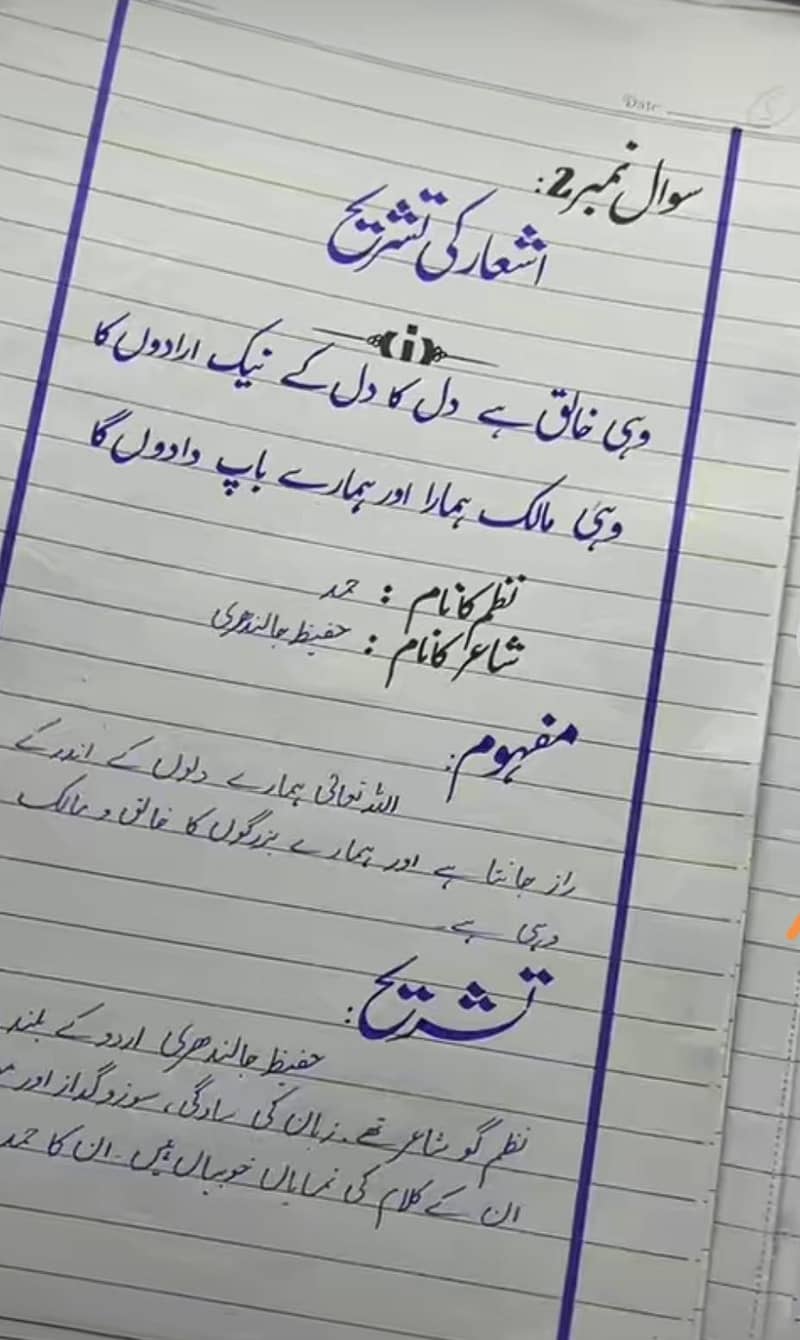 Date
سوال نمبر 2:
اشعار کی تشریح
(i)
وہی خالق ہے دل کا دل کے نیک ارادوں کا
وہی مالک ہمارا اور ہمارے باپ دادوں کا
نظم کا نام : حمد
شاعر کا نام : حفیظ جالندھری
مفہوم:
اللہ تعالیٰ ہمارے دلوں کے اندر کے
راز جانتا ہے اور ہمارے بزرگوں کا خالق و مالک
وہی ہے۔
تشریح:
حفیظ جالندھری اردو کے بلند
نظم گو شاعر تھے۔ زبان کی سادگی، سوز و گداز اور
ان کے کلام کی نمایاں خوبیاں ہیں۔ ان کا حمد